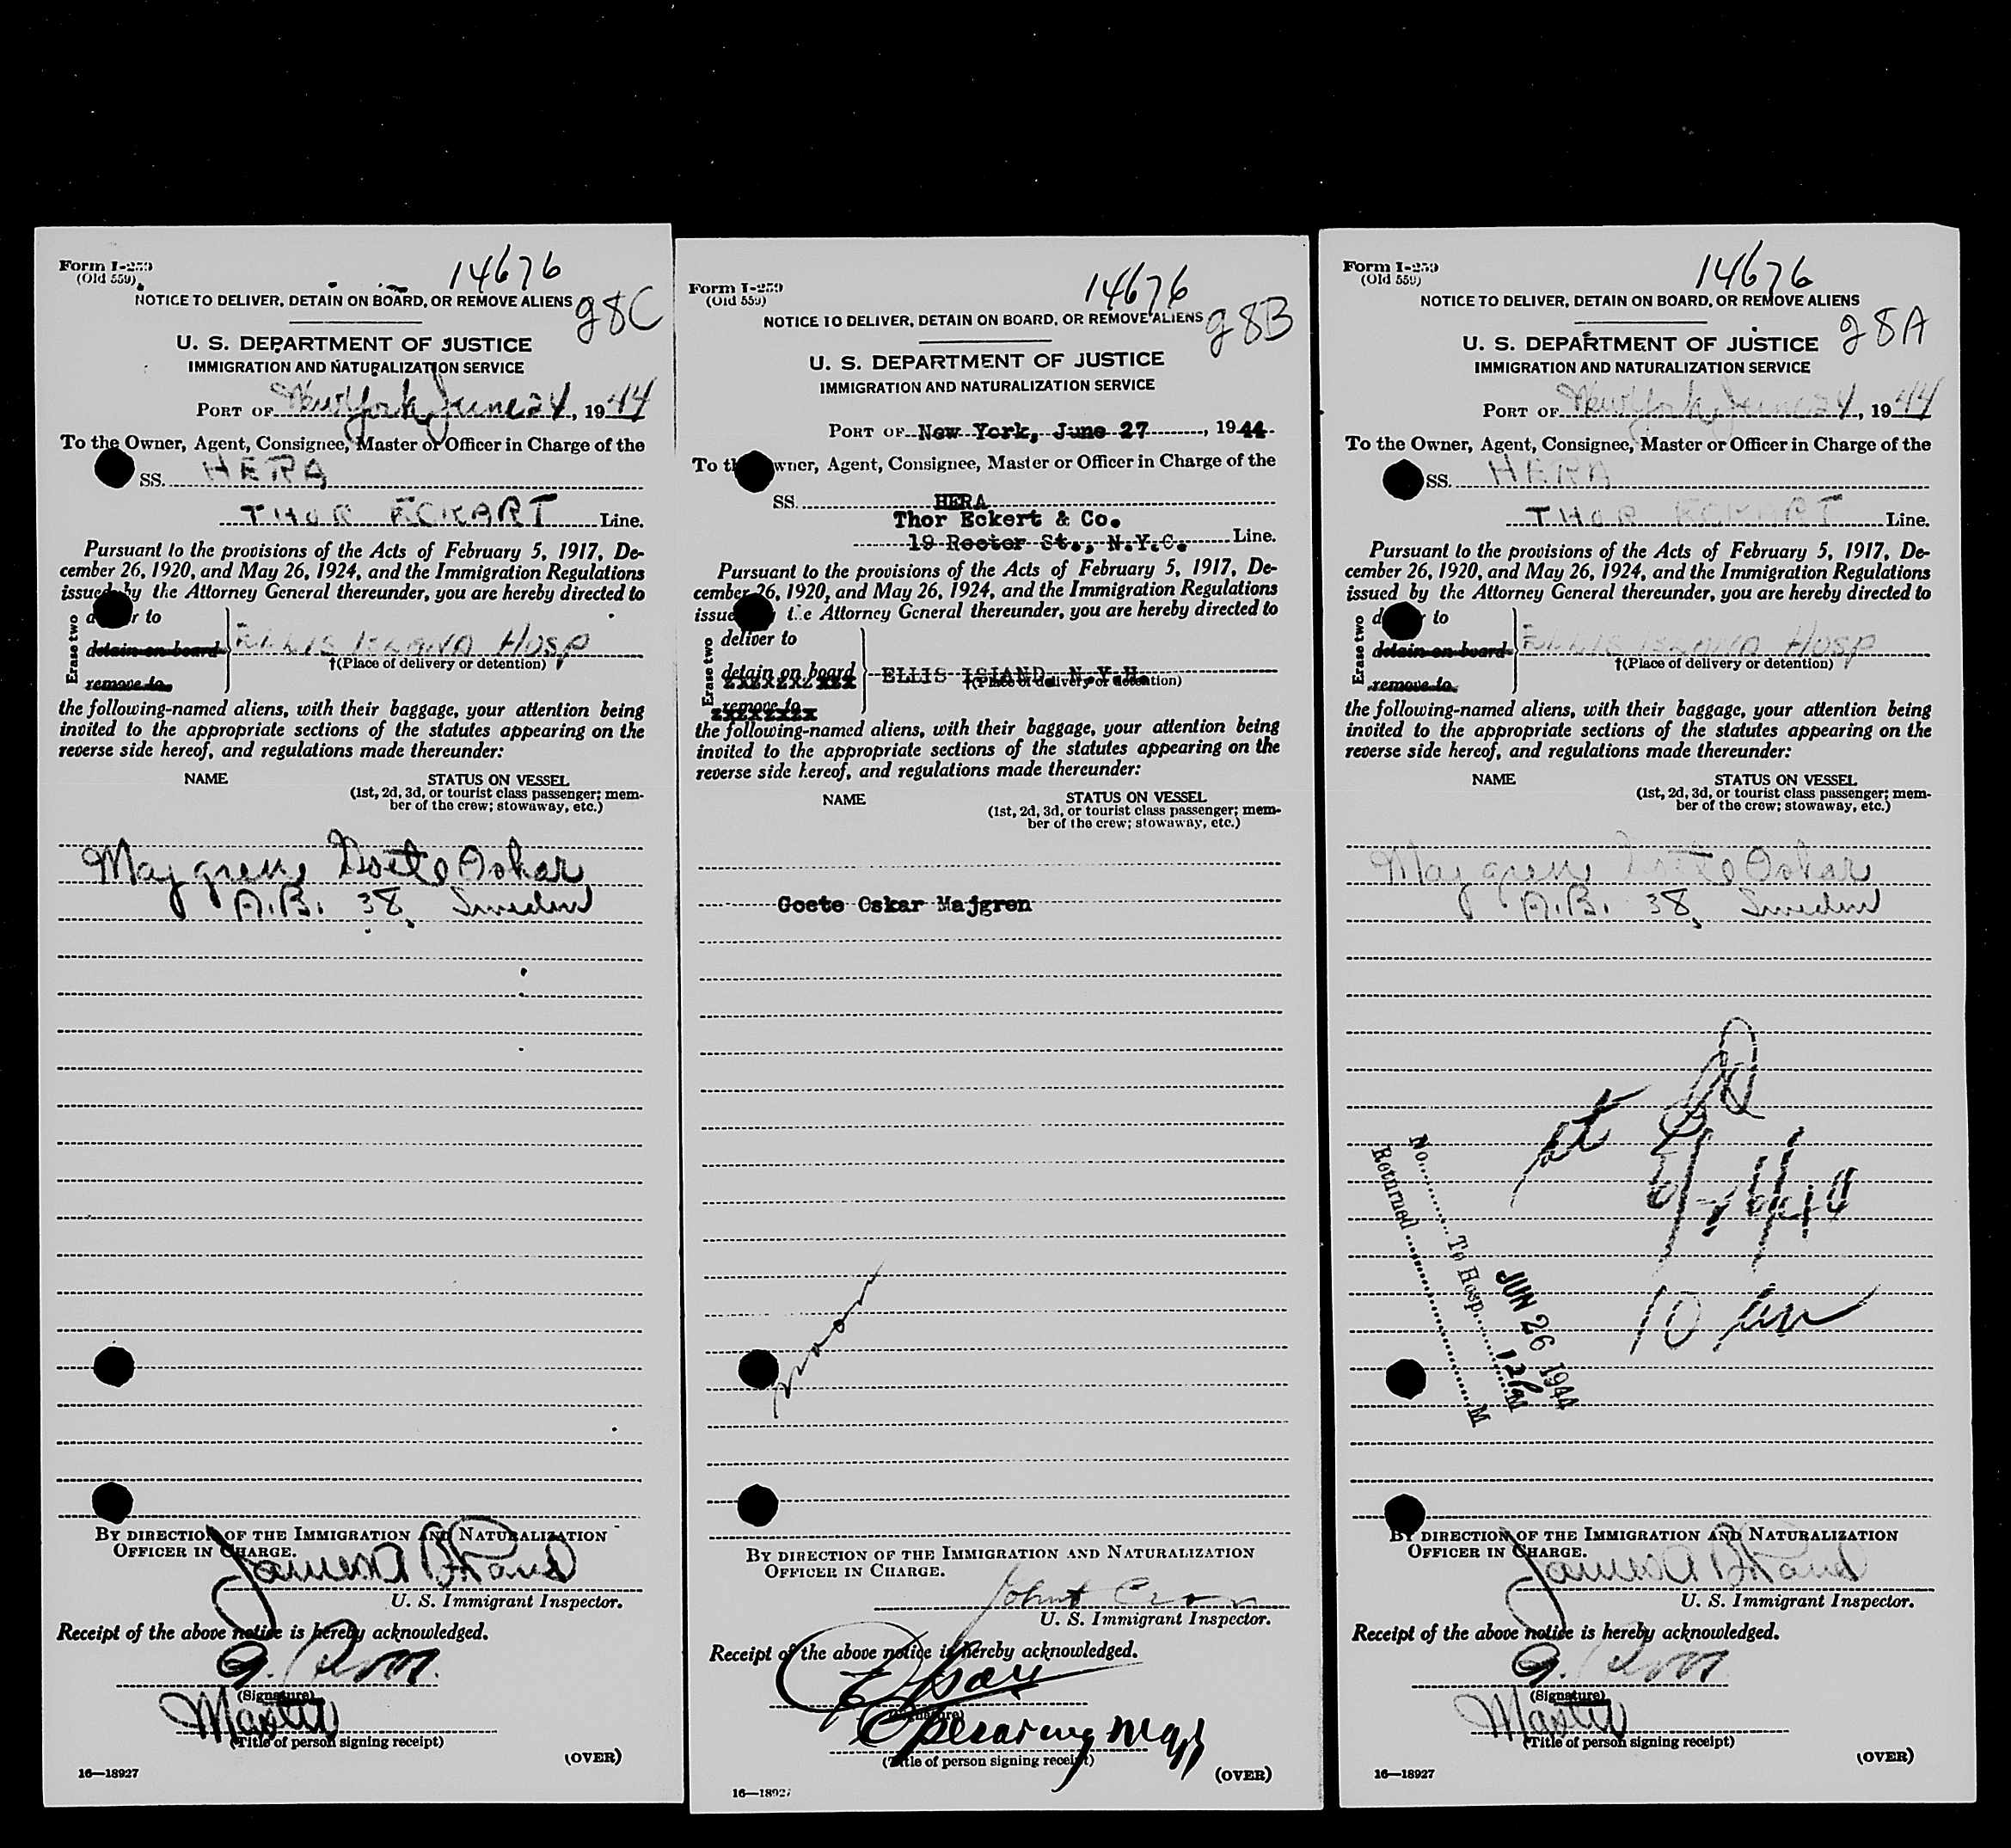 14676
Form I-259
(Old 559)
NOTICE TO DELIVER, DETAIN ON BOARD, OR REMOVE ALIENS
98C
U. S. DEPARTMENT OF JUSTICE
IMMIGRATION AND NATURALIZATION SERVICE
PORT OF New York, June 24, 1944
To the Owner, Agent, Consignee, Master or Officer in Charge of the
SS. HERA
THOR ECKART Line.
Pursuant to the provisions of the Acts of February 5, 1917, De-
cember 26, 1920, and May 26, 1924, and the Immigration Regulations
issued by the Attorney General thereunder, you are hereby directed to
Erase two
to
detain on board
ELLIS ISLAND HOSP
†(Place of delivery or detention)
remove to
the following-named aliens, with their baggage, your attention being
invited to the appropriate sections of the statutes appearing on the
reverse side hereof, and regulations made thereunder:
NAME
STATUS ON VESSEL
(1st, 2d, 3d, or tourist class passenger; mem-
ber of the crew; stowaway, etc.)
Majgren, Goete Oskar
A.B. 38, Sweden
BY DIRECTION OF THE IMMIGRATION AND NATURALIZATION
OFFICER IN CHARGE.
James A
U. S. Immigrant Inspector.
Receipt of the above notice is hereby acknowledged.
(Signature)
Master
(Title of person signing receipt)
(OVER)
16—18927
14676
Form I-259
(Old 559)
NOTICE TO DELIVER, DETAIN ON BOARD, OR REMOVE ALIENS
98B
U. S. DEPARTMENT OF JUSTICE
IMMIGRATION AND NATURALIZATION SERVICE
PORT OF New York, June 27, 1944
To the Owner, Agent, Consignee, Master or Officer in Charge of the
SS. HERA
Thor Eckert & Co.
19 Rector St., N.Y.C. Line.
Pursuant to the provisions of the Acts of February 5, 1917, De-
cember 26, 1920, and May 26, 1924, and the Immigration Regulations
issued the Attorney General thereunder, you are hereby directed to
Erase two
deliver to
detain on board
ELLIS ISLAND, N.Y.H.
†(Place of delivery or detention)
remove to
the following-named aliens, with their baggage, your attention being
invited to the appropriate sections of the statutes appearing on the
reverse side hereof, and regulations made thereunder:
NAME
STATUS ON VESSEL
(1st, 2d, 3d, or tourist class passenger; mem-
ber of the crew; stowaway, etc.)
Goete Oskar Majgren
BY DIRECTION OF THE IMMIGRATION AND NATURALIZATION
OFFICER IN CHARGE.
U. S. Immigrant Inspector.
Receipt of the above notice is hereby acknowledged.
(Signature)
Operating Mgr
(Title of person signing receipt)
(OVER)
16—18927
14676
Form I-259
(Old 559)
NOTICE TO DELIVER, DETAIN ON BOARD, OR REMOVE ALIENS
98A
U. S. DEPARTMENT OF JUSTICE
IMMIGRATION AND NATURALIZATION SERVICE
PORT OF New York, June 24, 1944
To the Owner, Agent, Consignee, Master or Officer in Charge of the
SS. HERA
THOR ECKART Line.
Pursuant to the provisions of the Acts of February 5, 1917, De-
cember 26, 1920, and May 26, 1924, and the Immigration Regulations
issued by the Attorney General thereunder, you are hereby directed to
Erase two
to
detain on board
ELLIS ISLAND HOSP
†(Place of delivery or detention)
remove to
the following-named aliens, with their baggage, your attention being
invited to the appropriate sections of the statutes appearing on the
reverse side hereof, and regulations made thereunder:
NAME
STATUS ON VESSEL
(1st, 2d, 3d, or tourist class passenger; mem-
ber of the crew; stowaway, etc.)
Majgren, Goete Oskar
A.B. 38, Sweden
at
6/26/44
10 am
No. To Hosp. JUN 26 1944 12 PM
Returned M
BY DIRECTION OF THE IMMIGRATION AND NATURALIZATION
OFFICER IN CHARGE.
James A
U. S. Immigrant Inspector.
Receipt of the above notice is hereby acknowledged.
(Signature)
Master
(Title of person signing receipt)
(OVER)
16—18927